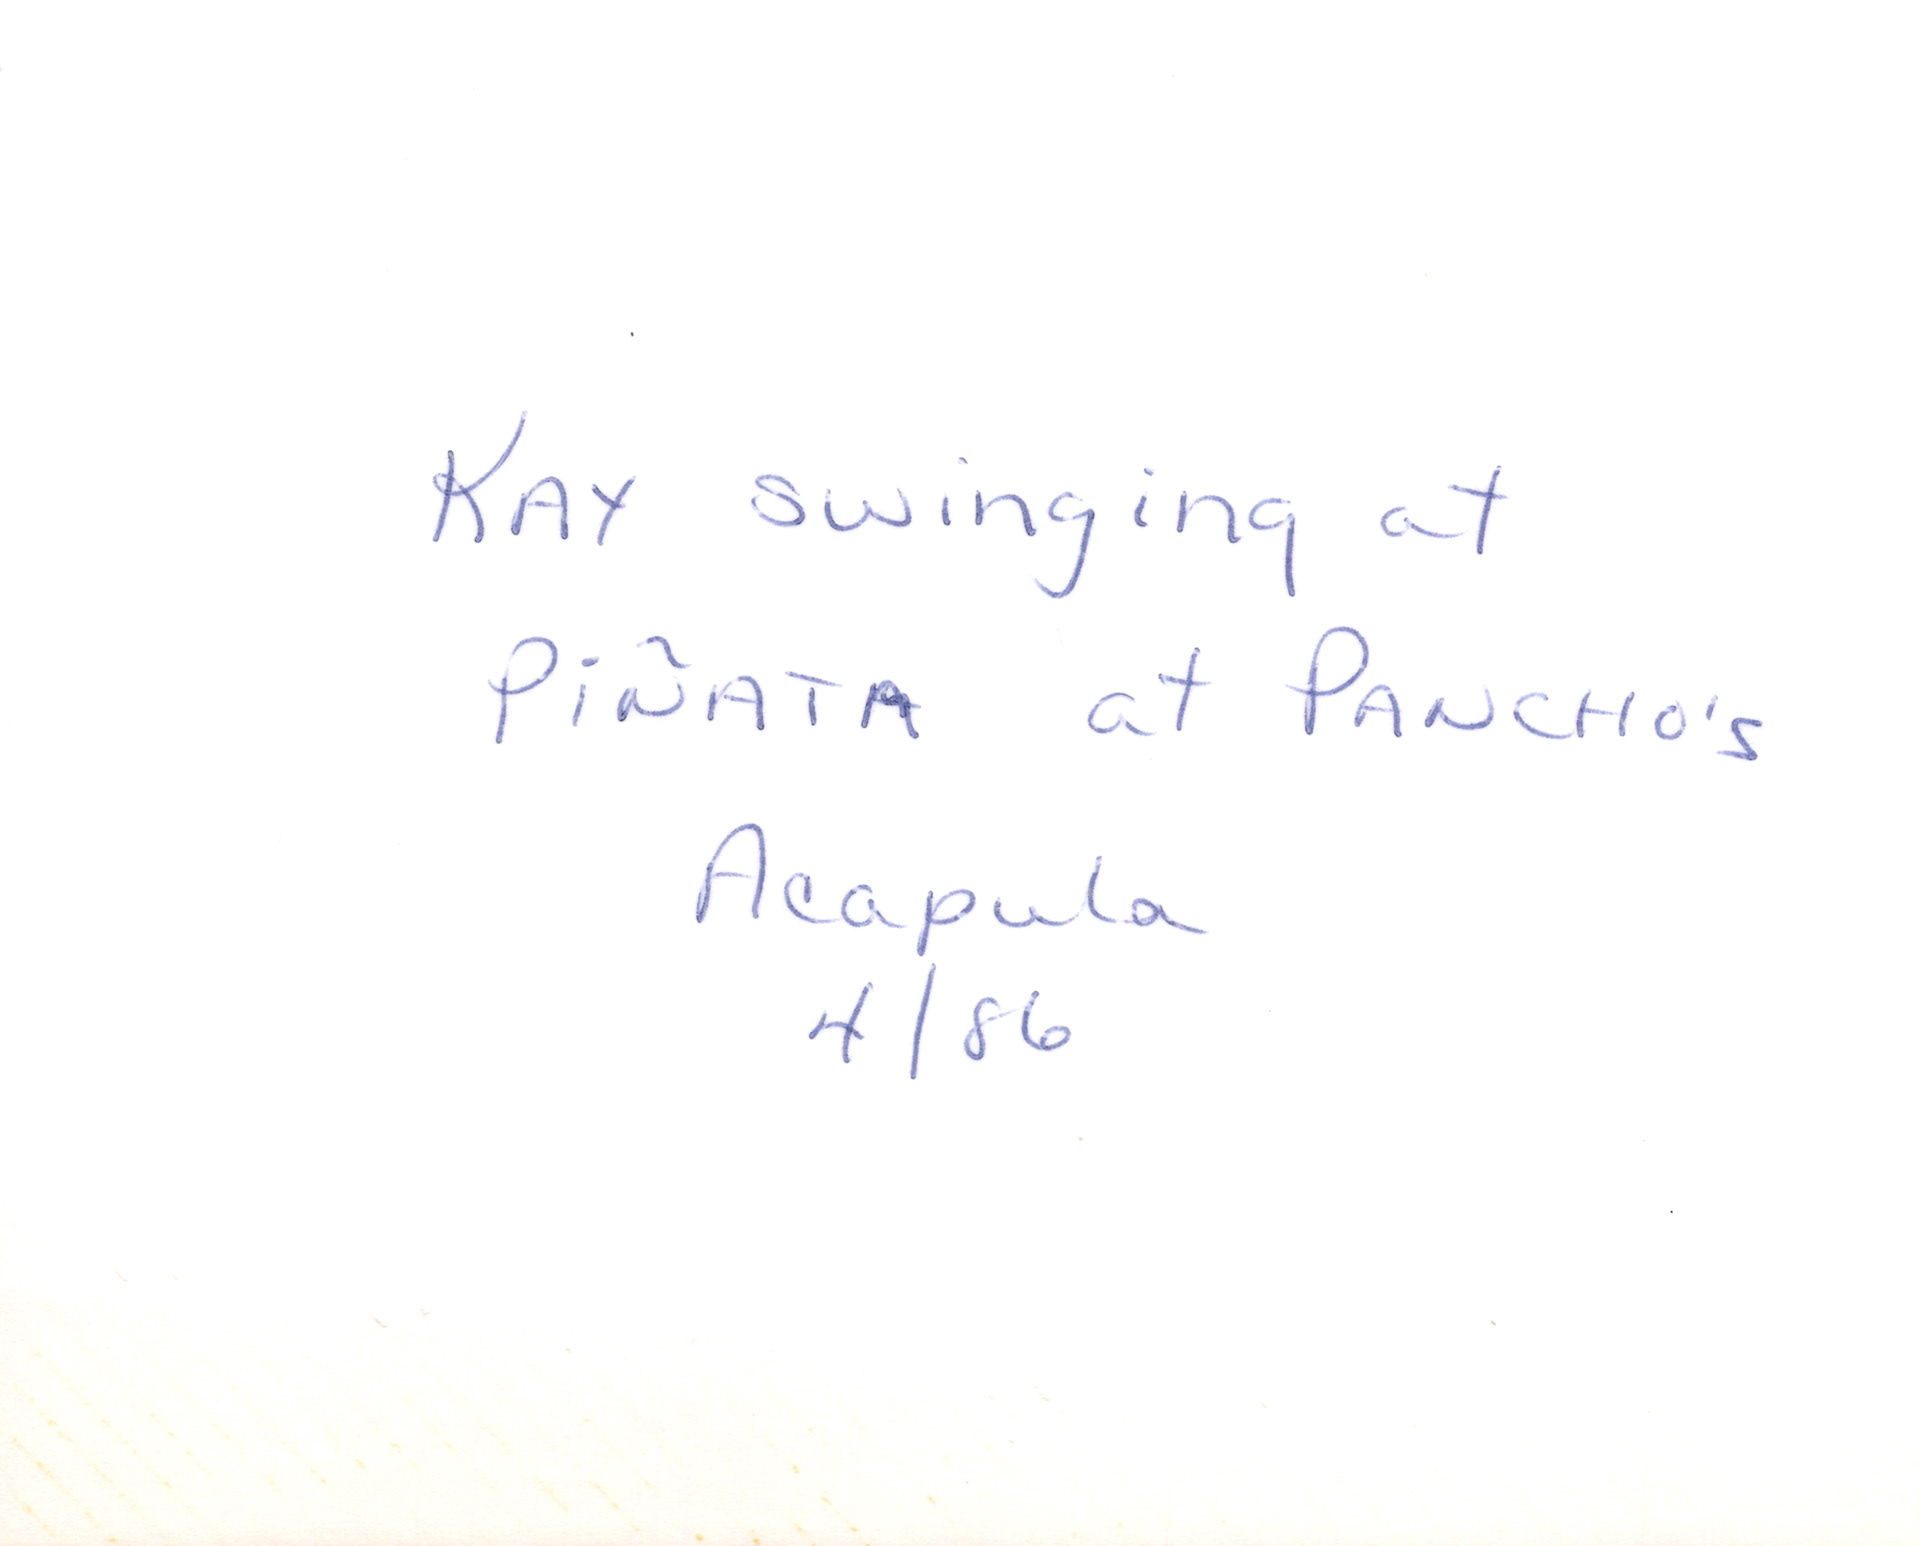 KAY swinging at
PiÑATA at PANCHO's
Acapula
4/86